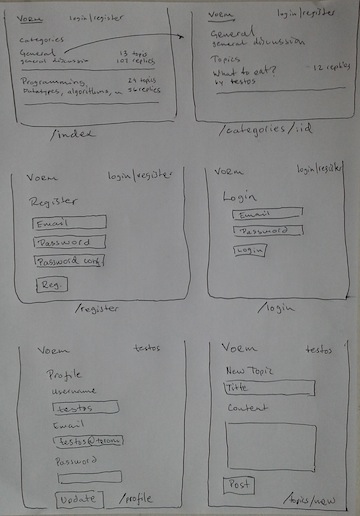 Vorm login/register
Categories
General 13 topic
general discussion 102 replies
Programming 24 topics
Datatypes, algorithms, 56 replies
/index
Vorm login/register
General
general discussion
Topics
What to eat? 12 replies
by testos
/categories/:id
Vorm login/register
Register
Email
Password
Password conf
Reg.
/register
Vorm login/register
Login
Email
Password
Login
/login
Vorm testos
Profile
Username
testos
Email
Password
Update
/profile
Vorm testos
New Topic
Title
Content
Post
/topics/new